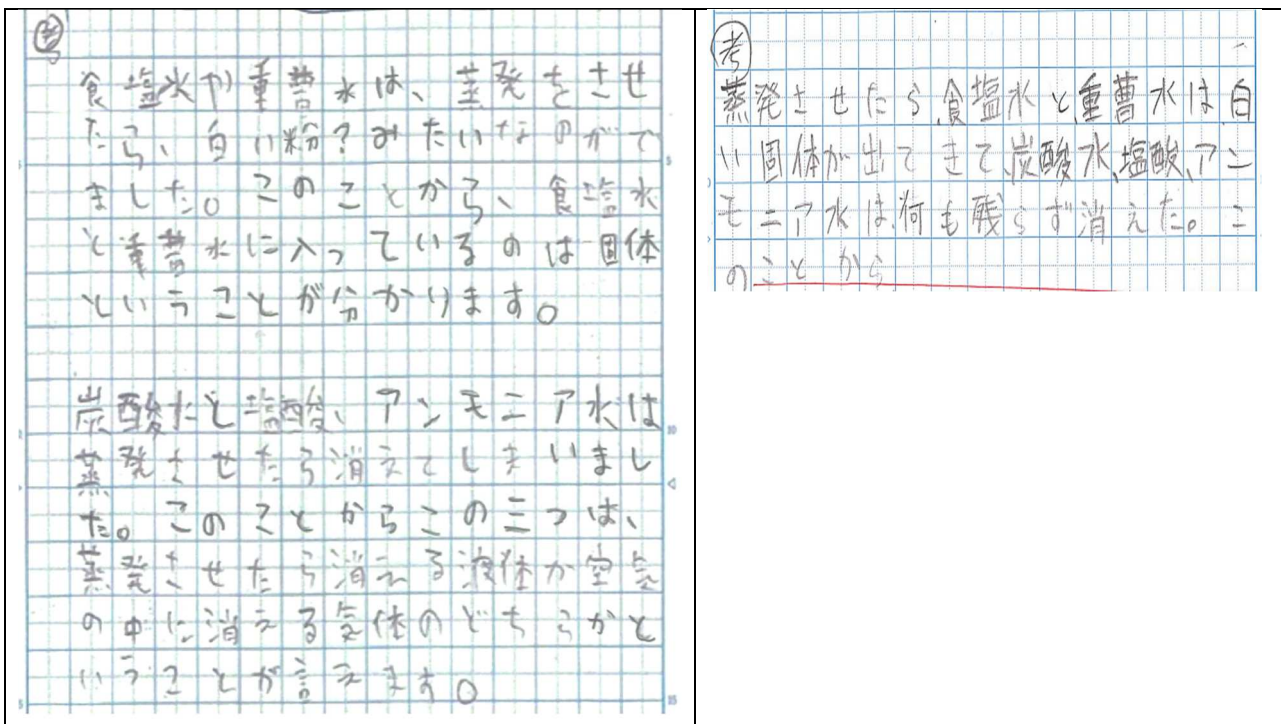 考
食塩水や重曹水は、蒸発をさせ
たら、白い粉?みたいなのがで
ました。このことから、食塩水
と重曹水に入っているのは固体
ということが分かります。
炭酸水と塩酸、アンモニア水は
蒸発させたら消えてしまいまし
た。このことからこの三つは、
蒸発させたら消える液体か空気
の中に消える気体のどちらかと
いうことが言えます。
考
蒸発させたら、食塩水と、重曹水は白
い固体が出てきて、炭酸水、塩酸、アン
モニア水は、何も残らず消えた。こ
のことから